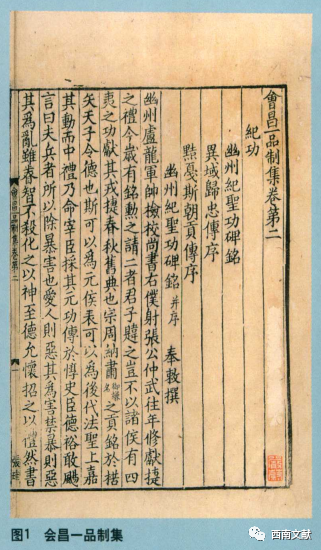 會昌一品制集卷第二
紀功
幽州紀聖功碑銘
異域歸忠傳序
黠戛斯朝貢圖傳序
幽州紀聖功碑銘 并序 奉敕撰
幽州盧龍軍帥撿校尚書右僕射張公仲武往年修獻捷
之禮今歲有銘勳之請二者君子韙之豈不以諸侯有四
夷之功獻其戎捷春秋舊典也宗周納肅御嫌名之貢銘於楛
矢天子令德也斯可以為元侯表可以為後代法聖上嘉
其動而中禮乃命宰臣採其元功傳於惇史臣德裕敢颺
言曰夫兵者所以除暴害也愛人則惡其為害禁暴則惡
其為亂雖睿智不殺化之以神至德允懷招之以禮然書
會昌一品制集卷第二
一
图1 会昌一品制集
西南文献